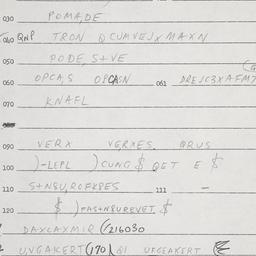 030 POMADE
040 QNP TRON QCUMVEJX MAXN
050 PODE S+VE
060 OPCA,S OPCASN 061 DREJC3XAFM7
070 KNAFL
090 VERX VERXES QRUS
100 )-LEPL )CUNG $ QET E $
110 S+NSU,ROFKPES 111 -
120 $ )FAS+NSUREVET $
DAXCAXMIQ (/216030
UVGAKERT (170) Q1 UFGEAKERT